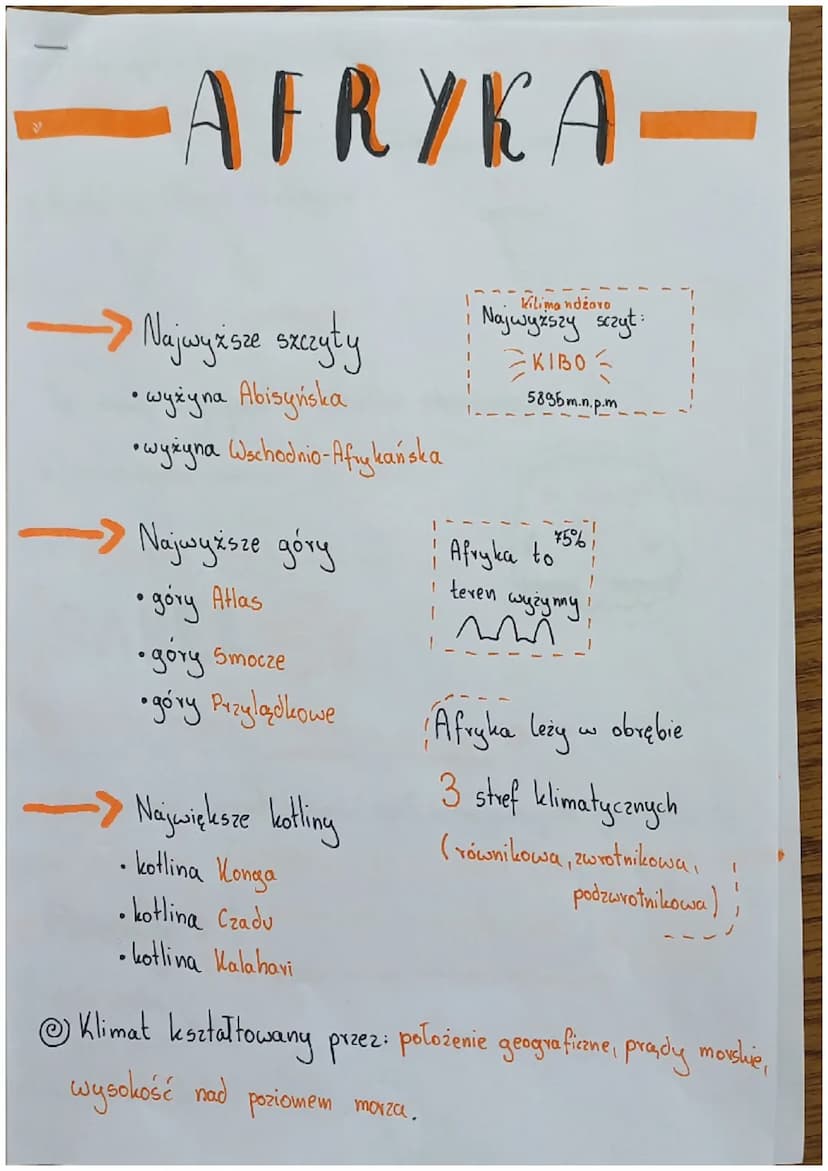 AFRYKA
Najwyższe szczyty
• wyżyna Abisyńska
• wyżyna Wschodnio-Afrykańska
Kilimandżaro
Najwyższy sczyt:
KIBO
5895m.n.p.m
Najwyższe góry
• góry Atlas
• góry Smocze
• góry Przylądkowe
75%
Afryka to
teren wyżynny
Afryka leży w obrębie
3 stref klimatycznych
(równikowa, zwrotnikowa,
podzwrotnikowa)
Największe kotliny
• kotlina Konga
• kotlina Czadu
• kotlina Kalahari
Klimat kształtowany przez: położenie geograficzne, prądy morskie,
wysokość nad poziomem morza.